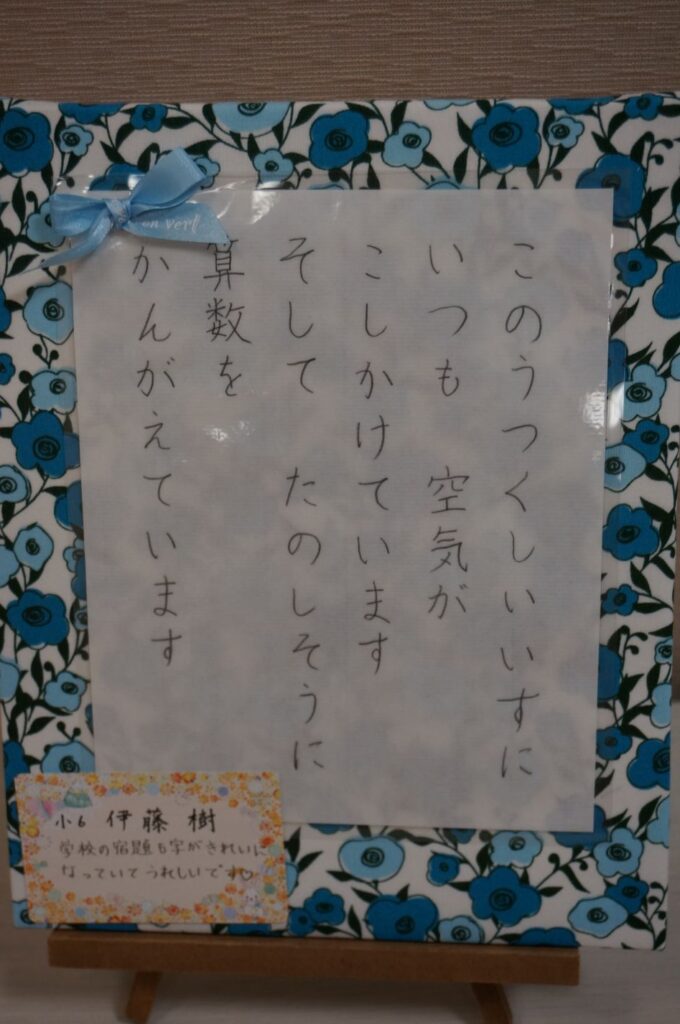 このうつくしいいすに
いつも　空気が
こしかけています
そして　たのしそうに
算数を
かんがえています
小6 伊藤 樹
学校の宿題も字がきれいに
なっていてうれしいです♡